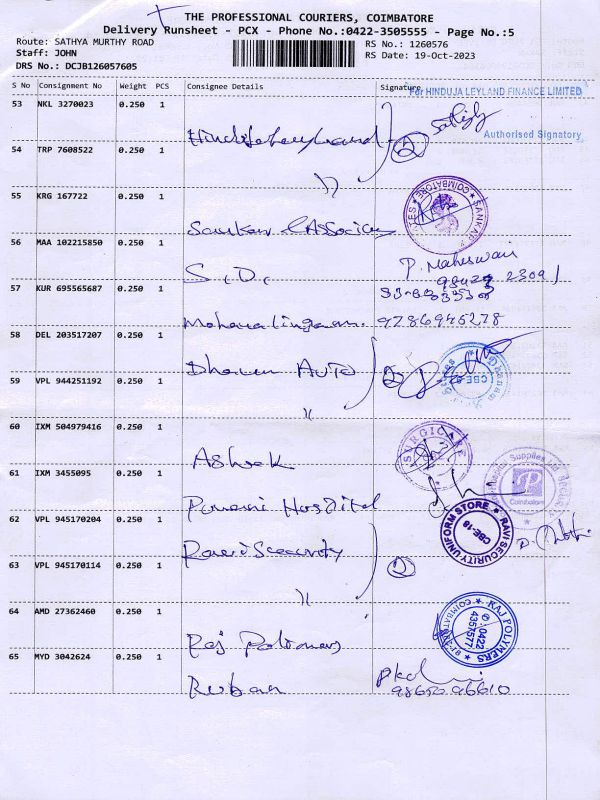 THE PROFESSIONAL COURIERS, COIMBATORE
Delivery Runsheet - PCX - Phone No.:0422-3505555 - Page No.:5
Route: SATHYA MURTHY ROAD
RS No.: 1260576
Staff: JOHN
RS Date: 19-Oct-2023
DRS No.: DCJB126057605
S No Consignment No Weight PCS Consignee Details Signature
For HINDUJA LEYLAND FINANCE LIMITED
53 NKL 3270023 0.250 1
Authorised Signatory
2
54 TRP 7608522 0.250 1
55 KRG 167722 0.250 1
COIMBATORE
Sankar & Associates
56 MAA 102215850 0.250 1
S.D. P. Maheswari
57 KUR 695565687 0.250 1
Mahalingam 9786945278
58 DEL 203517207 0.250 1
Dhanam Auto 2
CBE-
59 VPL 944251192 0.250 1
60 IXM 504979416 0.250 1
SURGICARE
Ashok
61 IXM 3455095 0.250 1
Hospital
62 VPL 945170204 0.250 1
RAVI SECURITY UNIFORM STORE
CBE-18
Ravi Security 2
63 VPL 945170114 0.250 1
64 AMD 27362460 0.250 1
Raj Polimers
RAJ POLYMERS
0422
4357577
65 MYD 3042624 0.250 1
Ruban